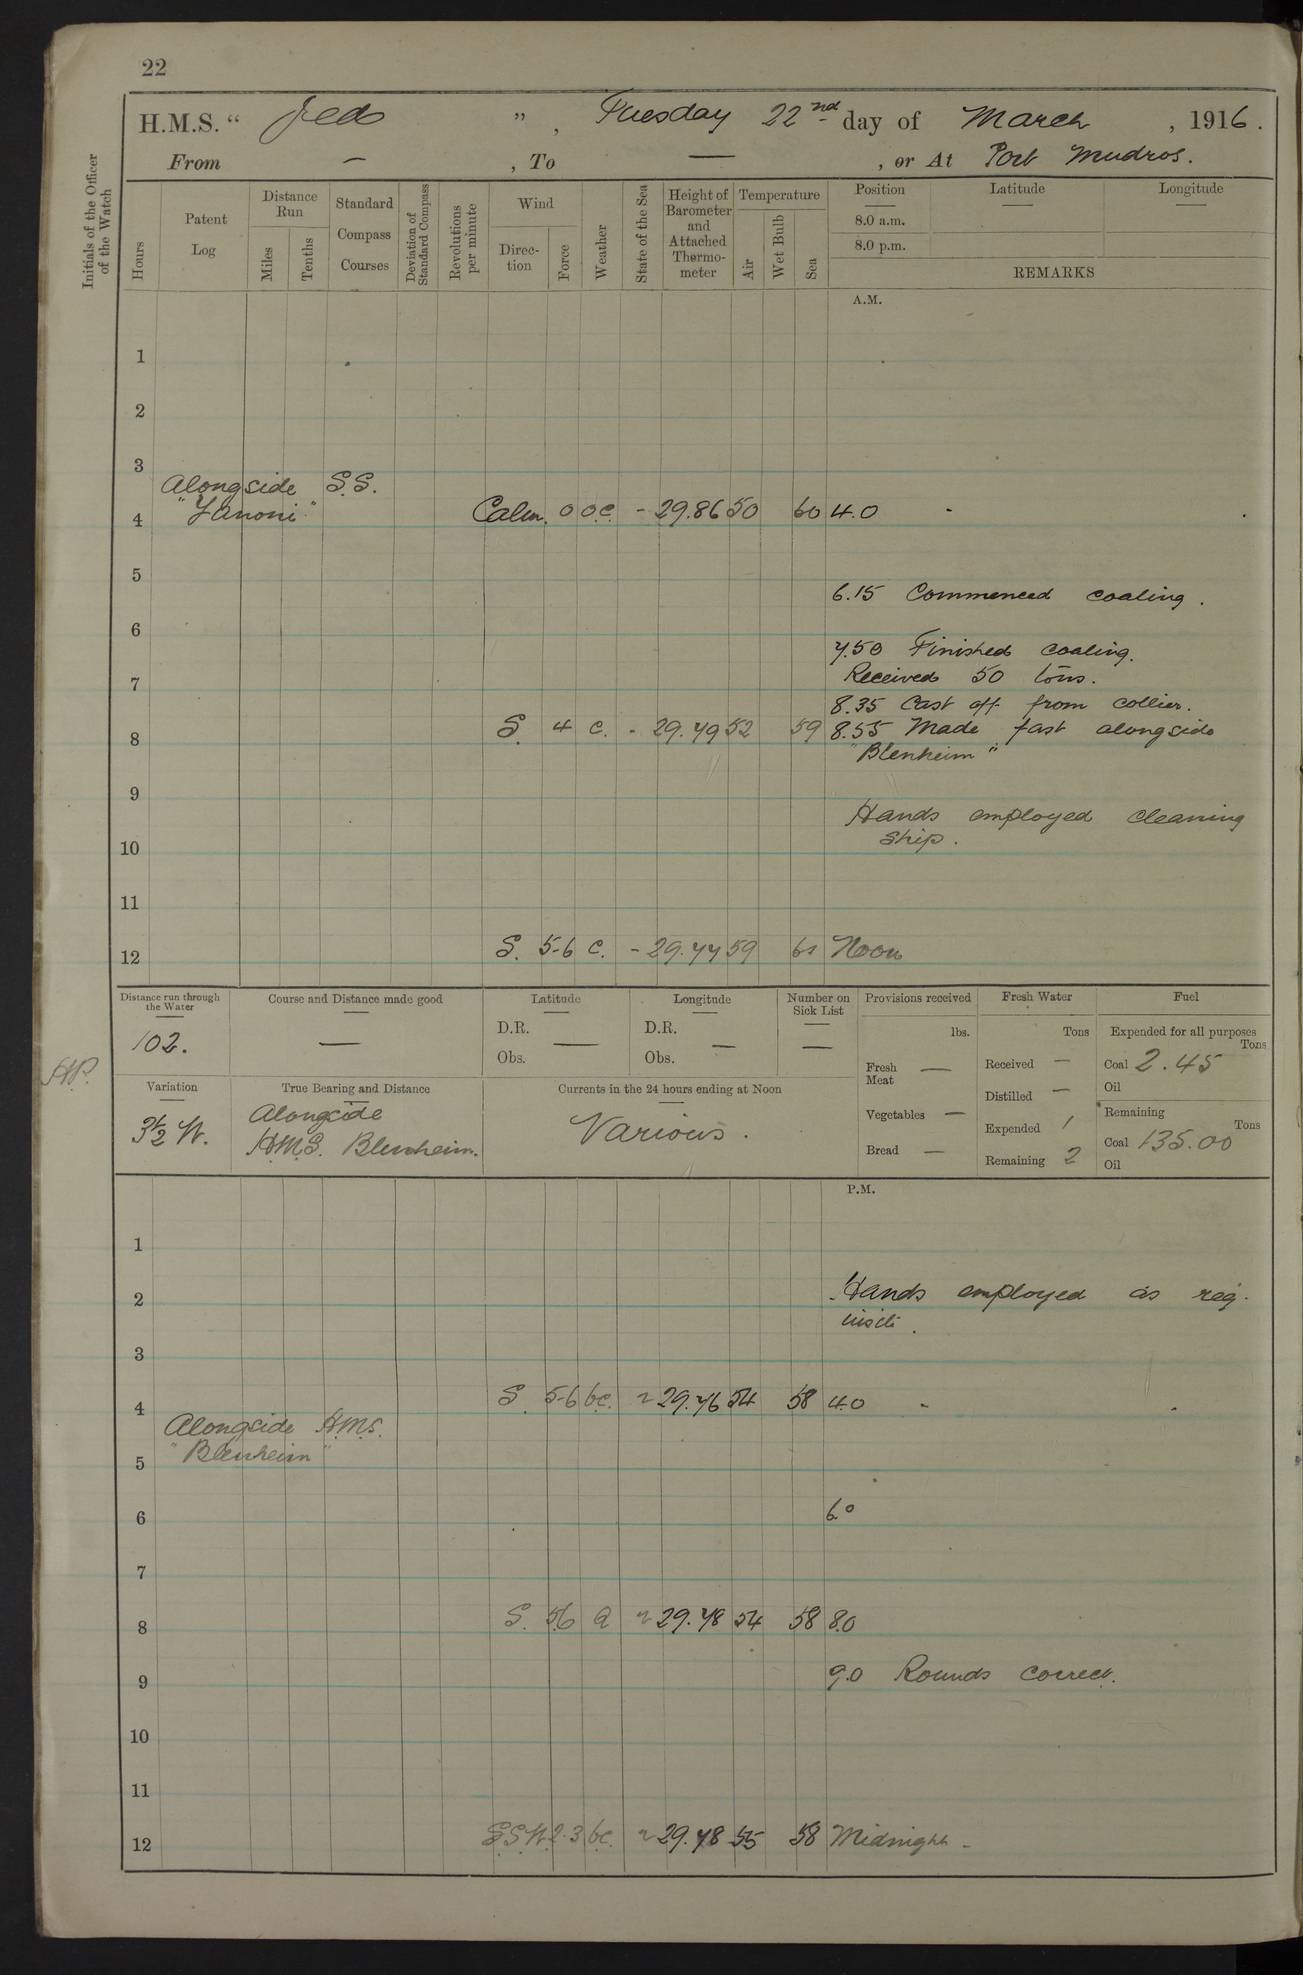 22
H.M.S. " Jed ", Tuesday 22nd day of March, 1916.
From — , To — , or At Port Mudros.
Initials of the Officer of the Watch
Hours
Patent Log
Distance Run
Miles
Tenths
Standard Compass Courses
Deviation of Standard Compass
Revolutions per minute
Wind
Direction
Force
Weather
State of the Sea
Height of Barometer and Attached Thermometer
Temperature
Air
Wet Bulb
Sea
Position
Latitude
Longitude
8.0 a.m.
8.0 p.m.
REMARKS
A.M.
1
2
3
Alongside S.S.
"Zanoni"
4 Calm. 0 o.c. - 29.86 50 60 4.0
5
6.15 Commenced coaling.
6
7.50 Finished coaling.
Received 50 tons.
7
8.35 Cast off from collier.
8 S. 4 c. - 29.79 52 59 8.55 Made fast alongside
"Blenheim"
9
Hands employed cleaning
ship.
10
11
12 S. 5-6 c. - 29.77 59 Noon
Distance run through the Water
102.
Course and Distance made good
—
Latitude
D.R.
Obs. —
Longitude
D.R.
Obs. —
Number on Sick List
—
Provisions received
lbs.
Fresh Meat —
Vegetables —
Bread —
Fresh Water
Tons
Received —
Distilled —
Expended 1
Remaining 2
Fuel
Expended for all purposes
Tons
Coal 2.45
Oil
Remaining
Tons
Coal 135.00
Oil
Variation
3½ W.
True Bearing and Distance
Alongside
H.M.S. Blenheim.
Currents in the 24 hours ending at Noon
Various.
P.M.
1
2 Hands employed as req-
uisite.
3
4 S. 5-6 bc. 29.76 54 58 4.0
Alongside H.M.S.
"Blenheim"
5
6 6.0
7
8 S. 5.6 29.78 54 58 8.0
9 9.0 Rounds correct.
10
11
12 S.S.W. 2.3 bc. 29.78 55 58 Midnight -